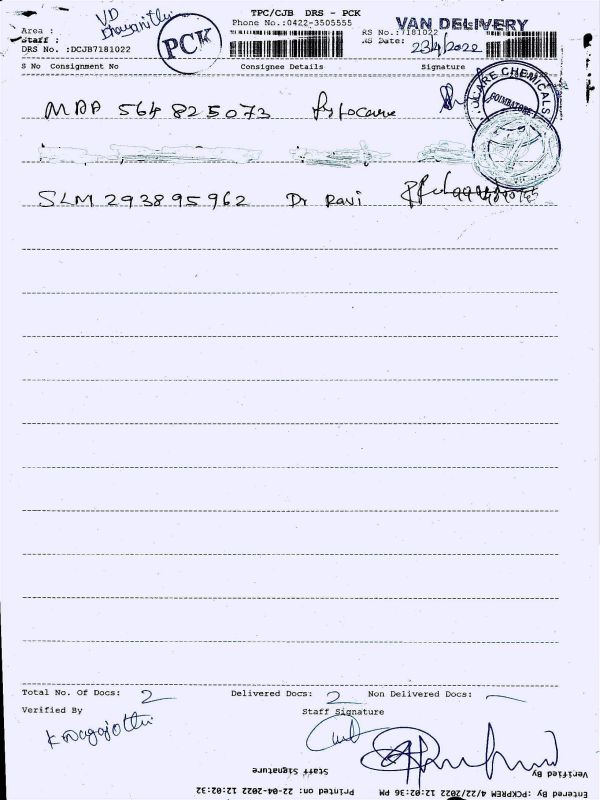 TPC/CJB DRS - PCK
Phone No.:0422-3505555
V.D
VAN DELIVERY
Area :
Staff :
PCK
RS No.:7181022
RS Date: 23/4/2022
DRS No. :DCJB7181022
S No Consignment No Consignee Details Signature
MAA 564 825073
CARE CHEMICALS
COIMBATORE
SLM 293895962 Dr Ravi
Total No. Of Docs: 2 Delivered Docs: 2 Non Delivered Docs: —
Verified By Staff Signature
K Nagajothi
Verified By
Staff Signature
Entered By :PCKPREM 4/22/2022 12:02:36 PM Printed on: 22-04-2022 12:02:32